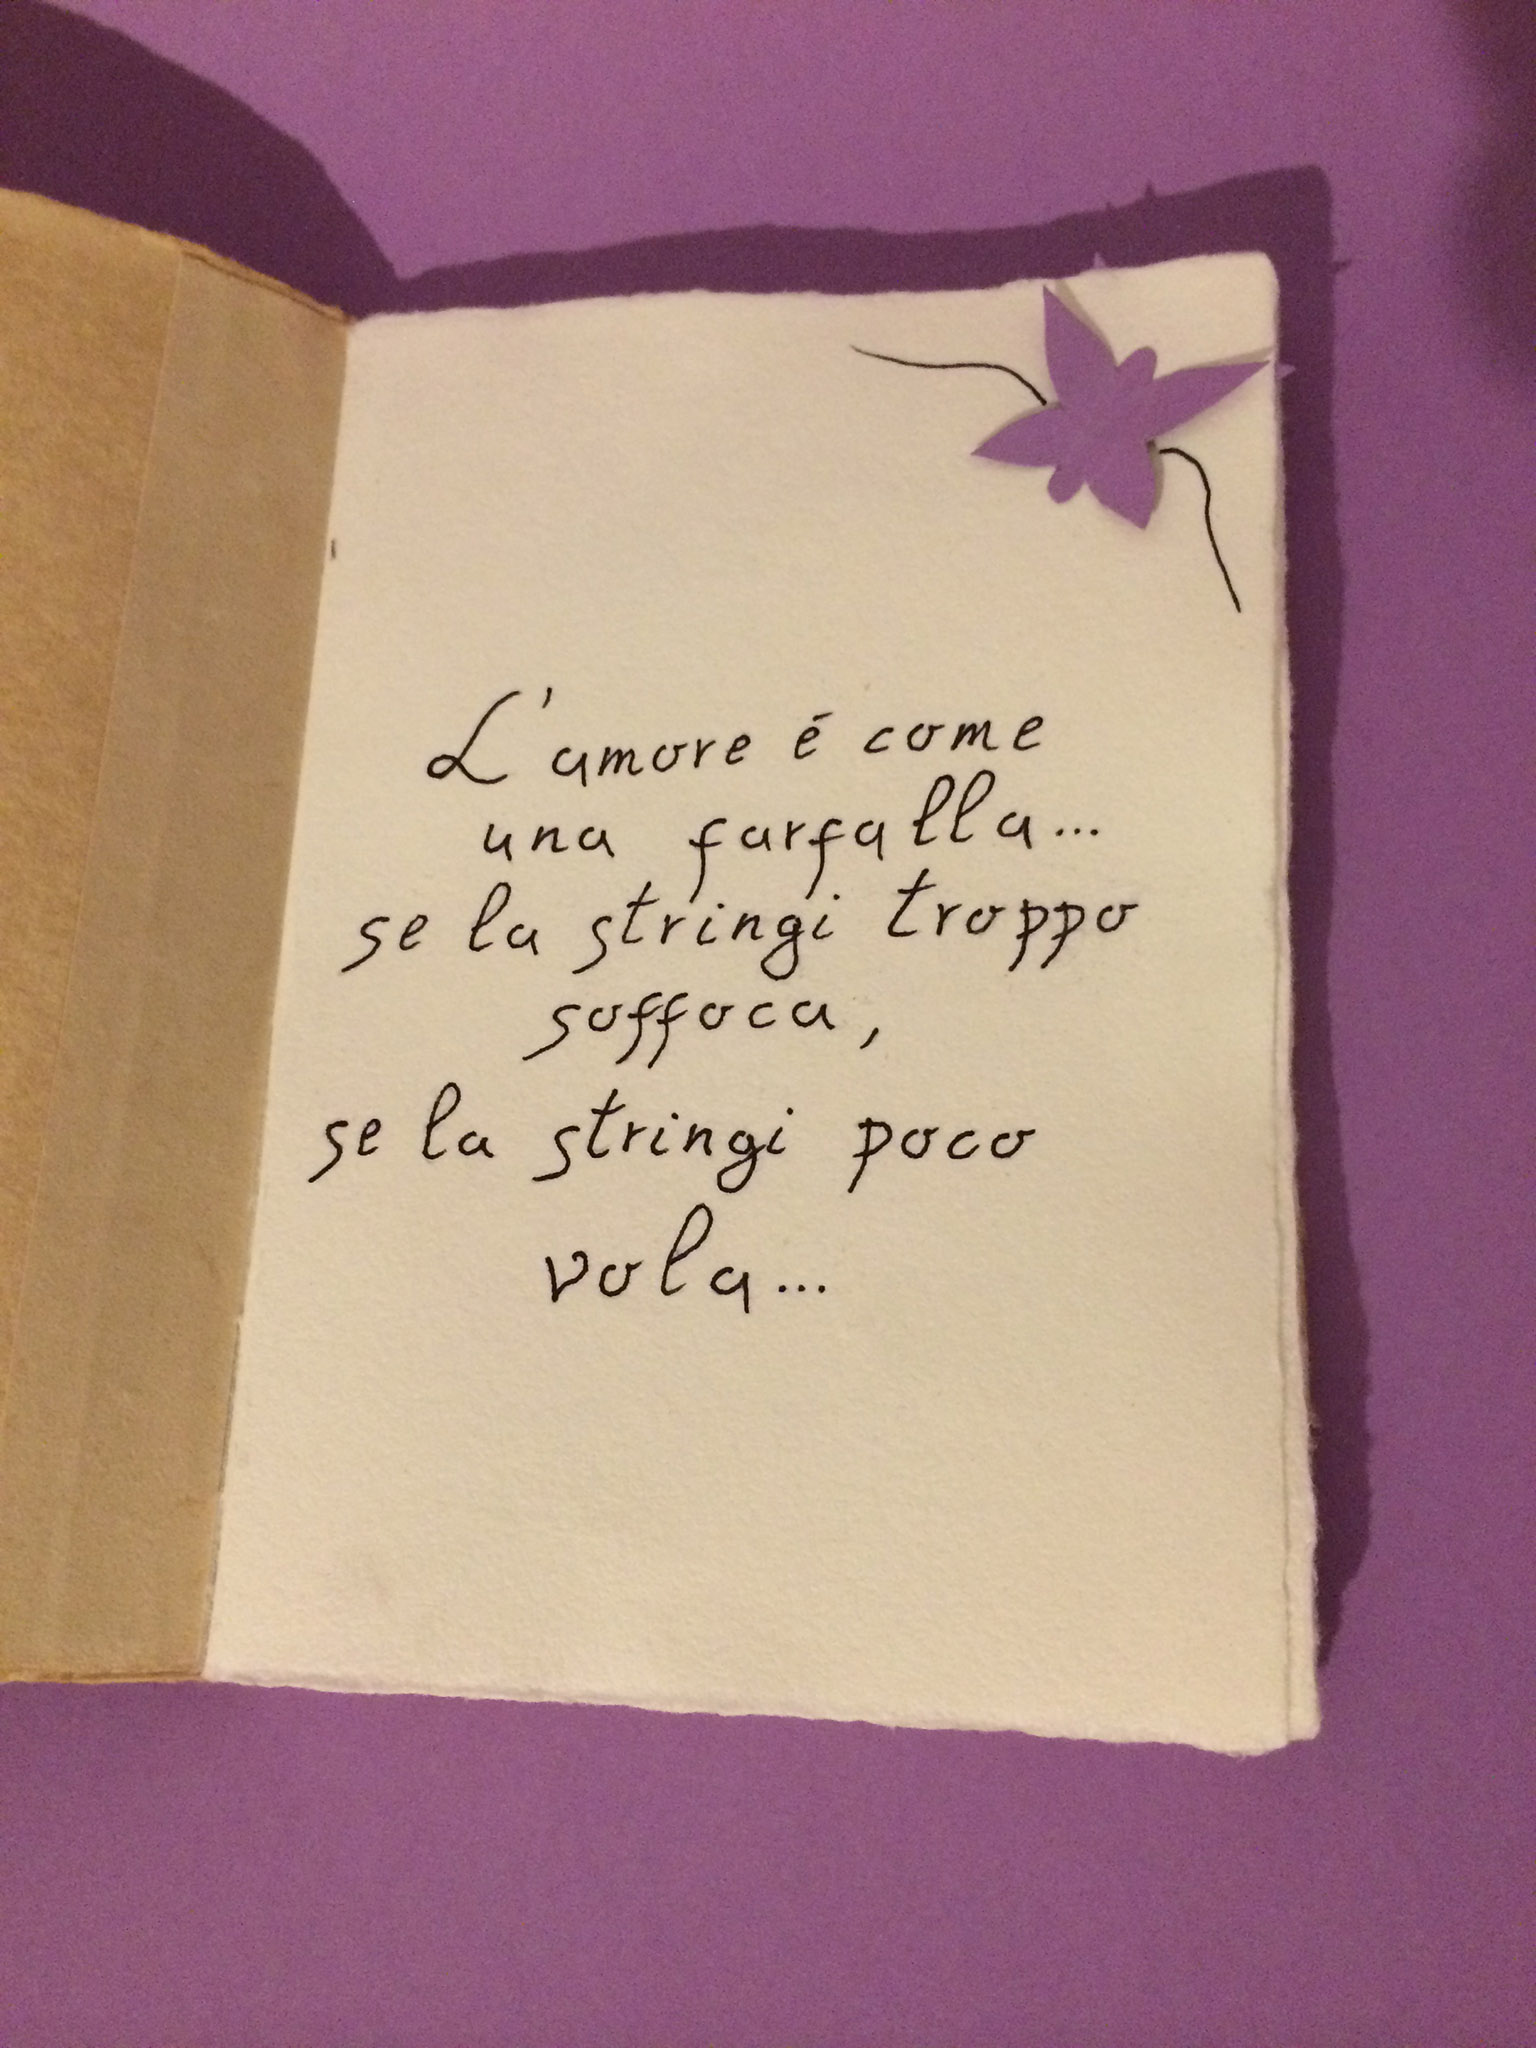 L'amore é come
una farfalla...
se la stringi troppo
soffoca,
se la stringi poco
vola...